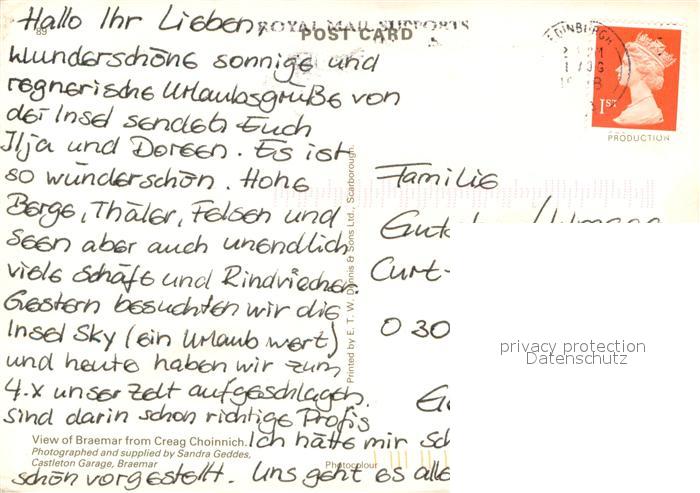 Hallo Ihr Lieben,
ROYAL MAIL SUPPORTS
POST CARD
89
EDINBURGH
wunderschöne sonnige und
regnerische Urlaubsgrüße von
der Insel senden Euch
Ilja und Doreen. Es ist
so wunderschön. Hohe
Berge, Thäler, Felsen und
seen aber auch unendlich
viele Schafe und Rindviecher.
Gestern besuchten wir die
Insel Sky (ein Urlaub wert)
und heute haben wir zum
4.x unser Zelt aufgeschlagen.
sind darin schon richtige Profis
Ich hätte mir
schön vorgestellt. Uns geht es alle
View of Braemar from Creag Choinnich.
Photographed and supplied by Sandra Geddes,
Castleton Garage, Braemar
Photocolour
Printed by E. T. W. Dennis & Sons Ltd., Scarborough.
1ST
PRODUCTION
Familie
Curt-
O 30
privacy protection
Datenschutz